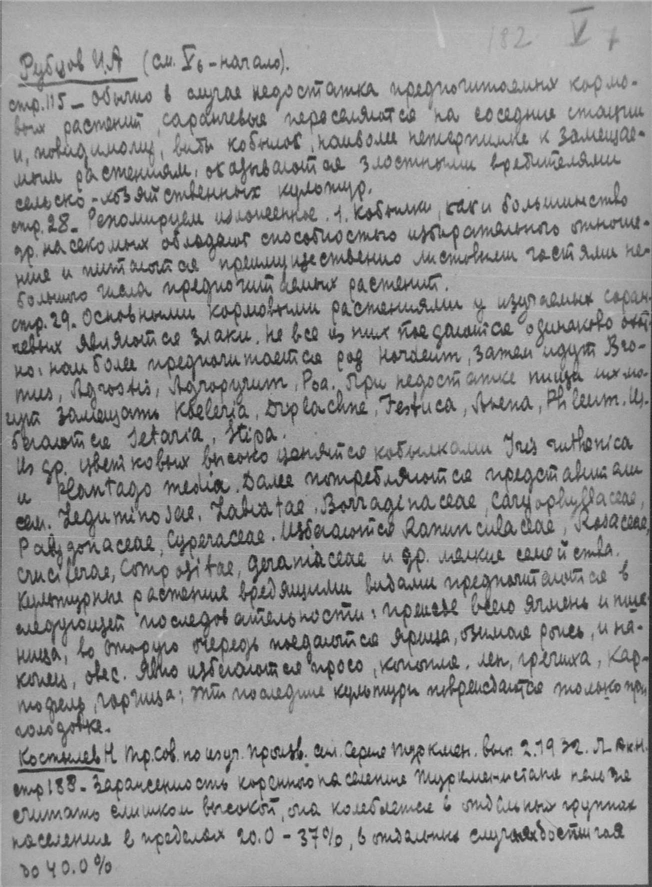 182 V 7
Рубцов И.А (см. V6 - начало).
стр. 115 - Обычно в случае недостатка предпочитаемых кормо-
вых растений, саранчевые переселяются на соседние стации
и, повидимому, виды кобылок, наиболее нетерпимые к замещае-
мым растениям, оказываются злостными вредителями
сельско-хозяйственных культур.
стр. 28 - Резюмируем изложенное. 1. Кобылки, как и большинство
др. насекомых обладают способностью избирательного отноше-
ния и питаются преимущественно листовыми частями не-
большого числа предпочитаемых растений.
стр. 29. Основными кормовыми растениями у изучаемых саран-
чевых являются злаки. Не все из них поедаются одинаково охот-
но: наиболее предпочитается род Hordeum, затем идут Bro-
mus, Agrostis, Agropyrum, Poa. При недостатке пищи их мо-
гут замещать Koeleria, Diplachne, Festuca, Avena, Phleum. Из-
бегаются Setaria, Stipa.
Из др. цветковых высоко ценятся кобылками Iris ruthenica
и Plantago media. Далее потребляются представители
сем. Leguminosae, Labiatae, Borragenaceae, Caryophyllaceae,
Polygonaceae, Cyperaceae. Избегаются Ranunculaceae, Rosaceae,
Cruciferae, Compositae, Geraniaceae и др. мелкие семейства.
Культурные растения вредящими видами предпочитаются в
следующей последовательности: прежде всего ячмень и пше-
ница, во вторую очередь поедаются ярица, озимая рожь, и на-
конец, овес. Явно избегаются просо, конопля, лен, гречиха, кар-
тофель, горчица; эти последние культуры повреждаются только при
голодовке.
Костылев Н Тр. Сов. по изуч. произв. сил. Серия Туркмен. вып. 2. 1932. Л. Ак Н.
стр 188 - Зараженность коренного населения Туркменистана нельзя
считать слишком высокой, она колеблется в отдельных группах
населения в пределах 20.0 - 37%, в отдельных случаях достигая
до 40.0%